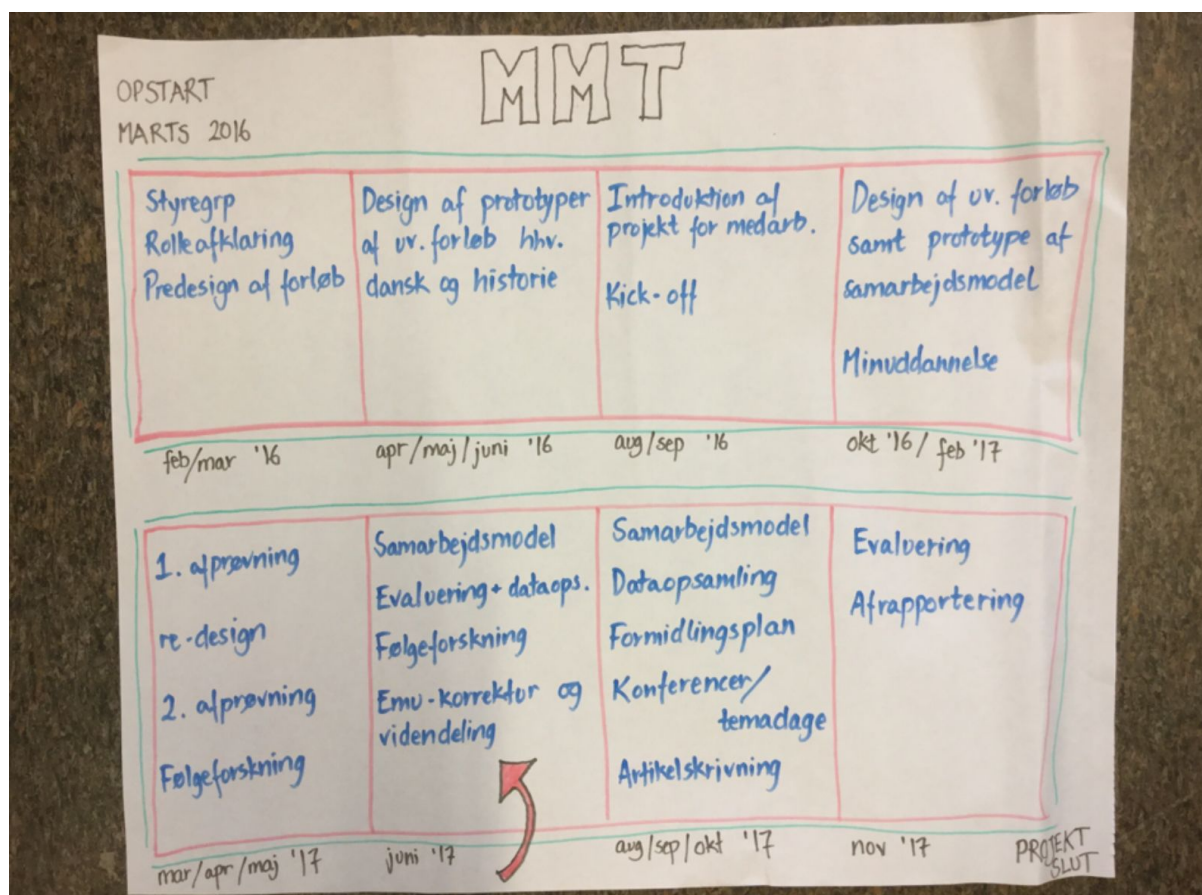 OPSTART
MARTS 2016
MMT
Styregrp
Rolleafklaring
Predesign af forløb
Design af prototyper
af uv. forløb hhv.
dansk og historie
Introduktion af
projekt for medarb.
Kick-off
Design af uv. forløb
samt prototype af
samarbejdsmodel
Minuddannelse
feb/mar '16
apr/maj/juni '16
aug/sep '16
okt '16/ feb '17
1. afprøvning
re-design
2. afprøvning
Følgeforskning
Samarbejdsmodel
Evaluering + dataops.
Følgeforskning
Emu-korrektur og
videndeling
Samarbejdsmodel
Dataopsamling
Formidlingsplan
Konferencer/
temadage
Artikelskrivning
Evaluering
Afrapportering
mar/apr/maj '17
juni '17
aug/sep/okt '17
nov '17
PROJEKT
SLUT